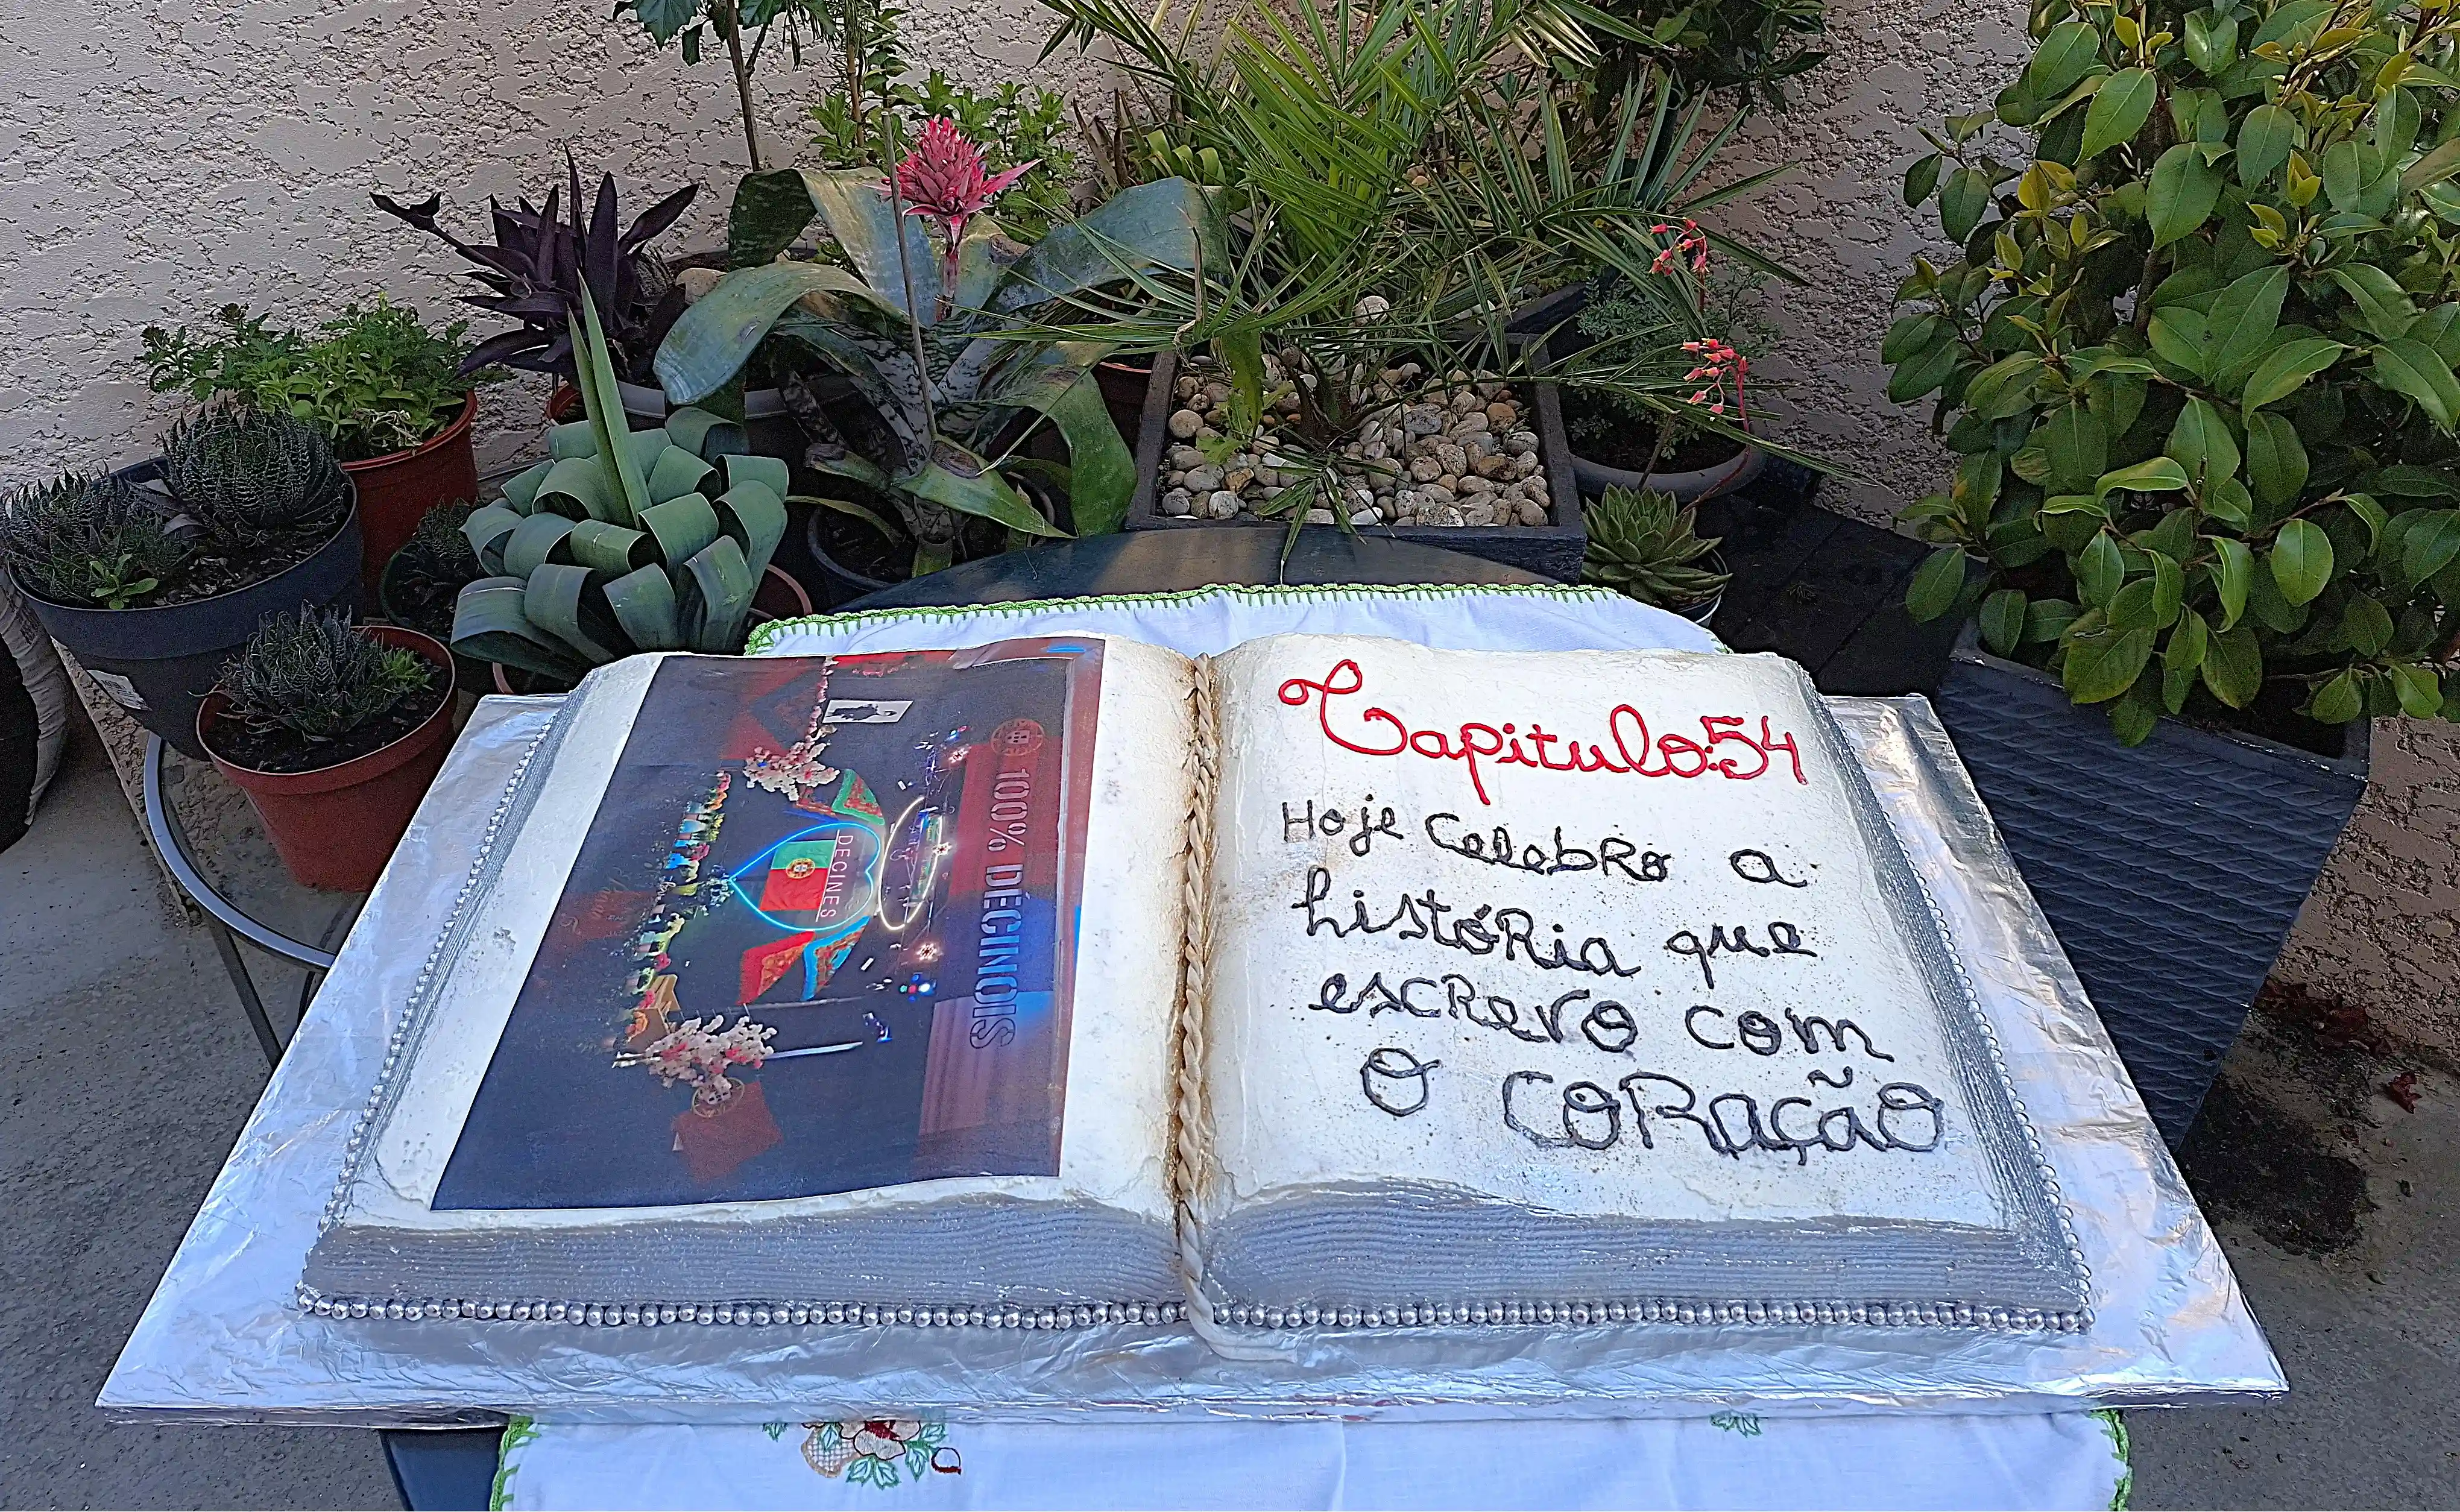 100% DÉCINOIS
DECINES
Capitulo:54
Hoje Celebro a
história que
escrevo com
o coração